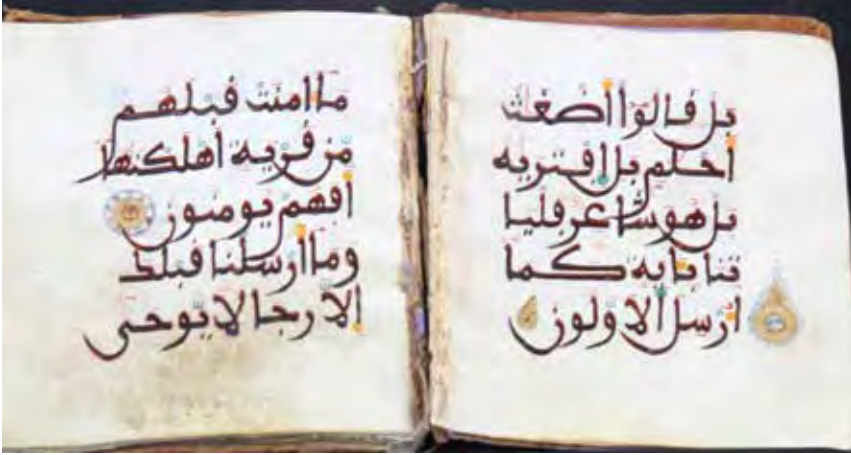 بل قالوا أضغث
أحلم بل افتريه
بل هو شاعر فليا
تنا باية كما
ارسل الاولون
ما امنت قبلهم
من قرية اهلكنها
افهم يومنون
وما ارسلنا قبلك
الا رجالا يوحى